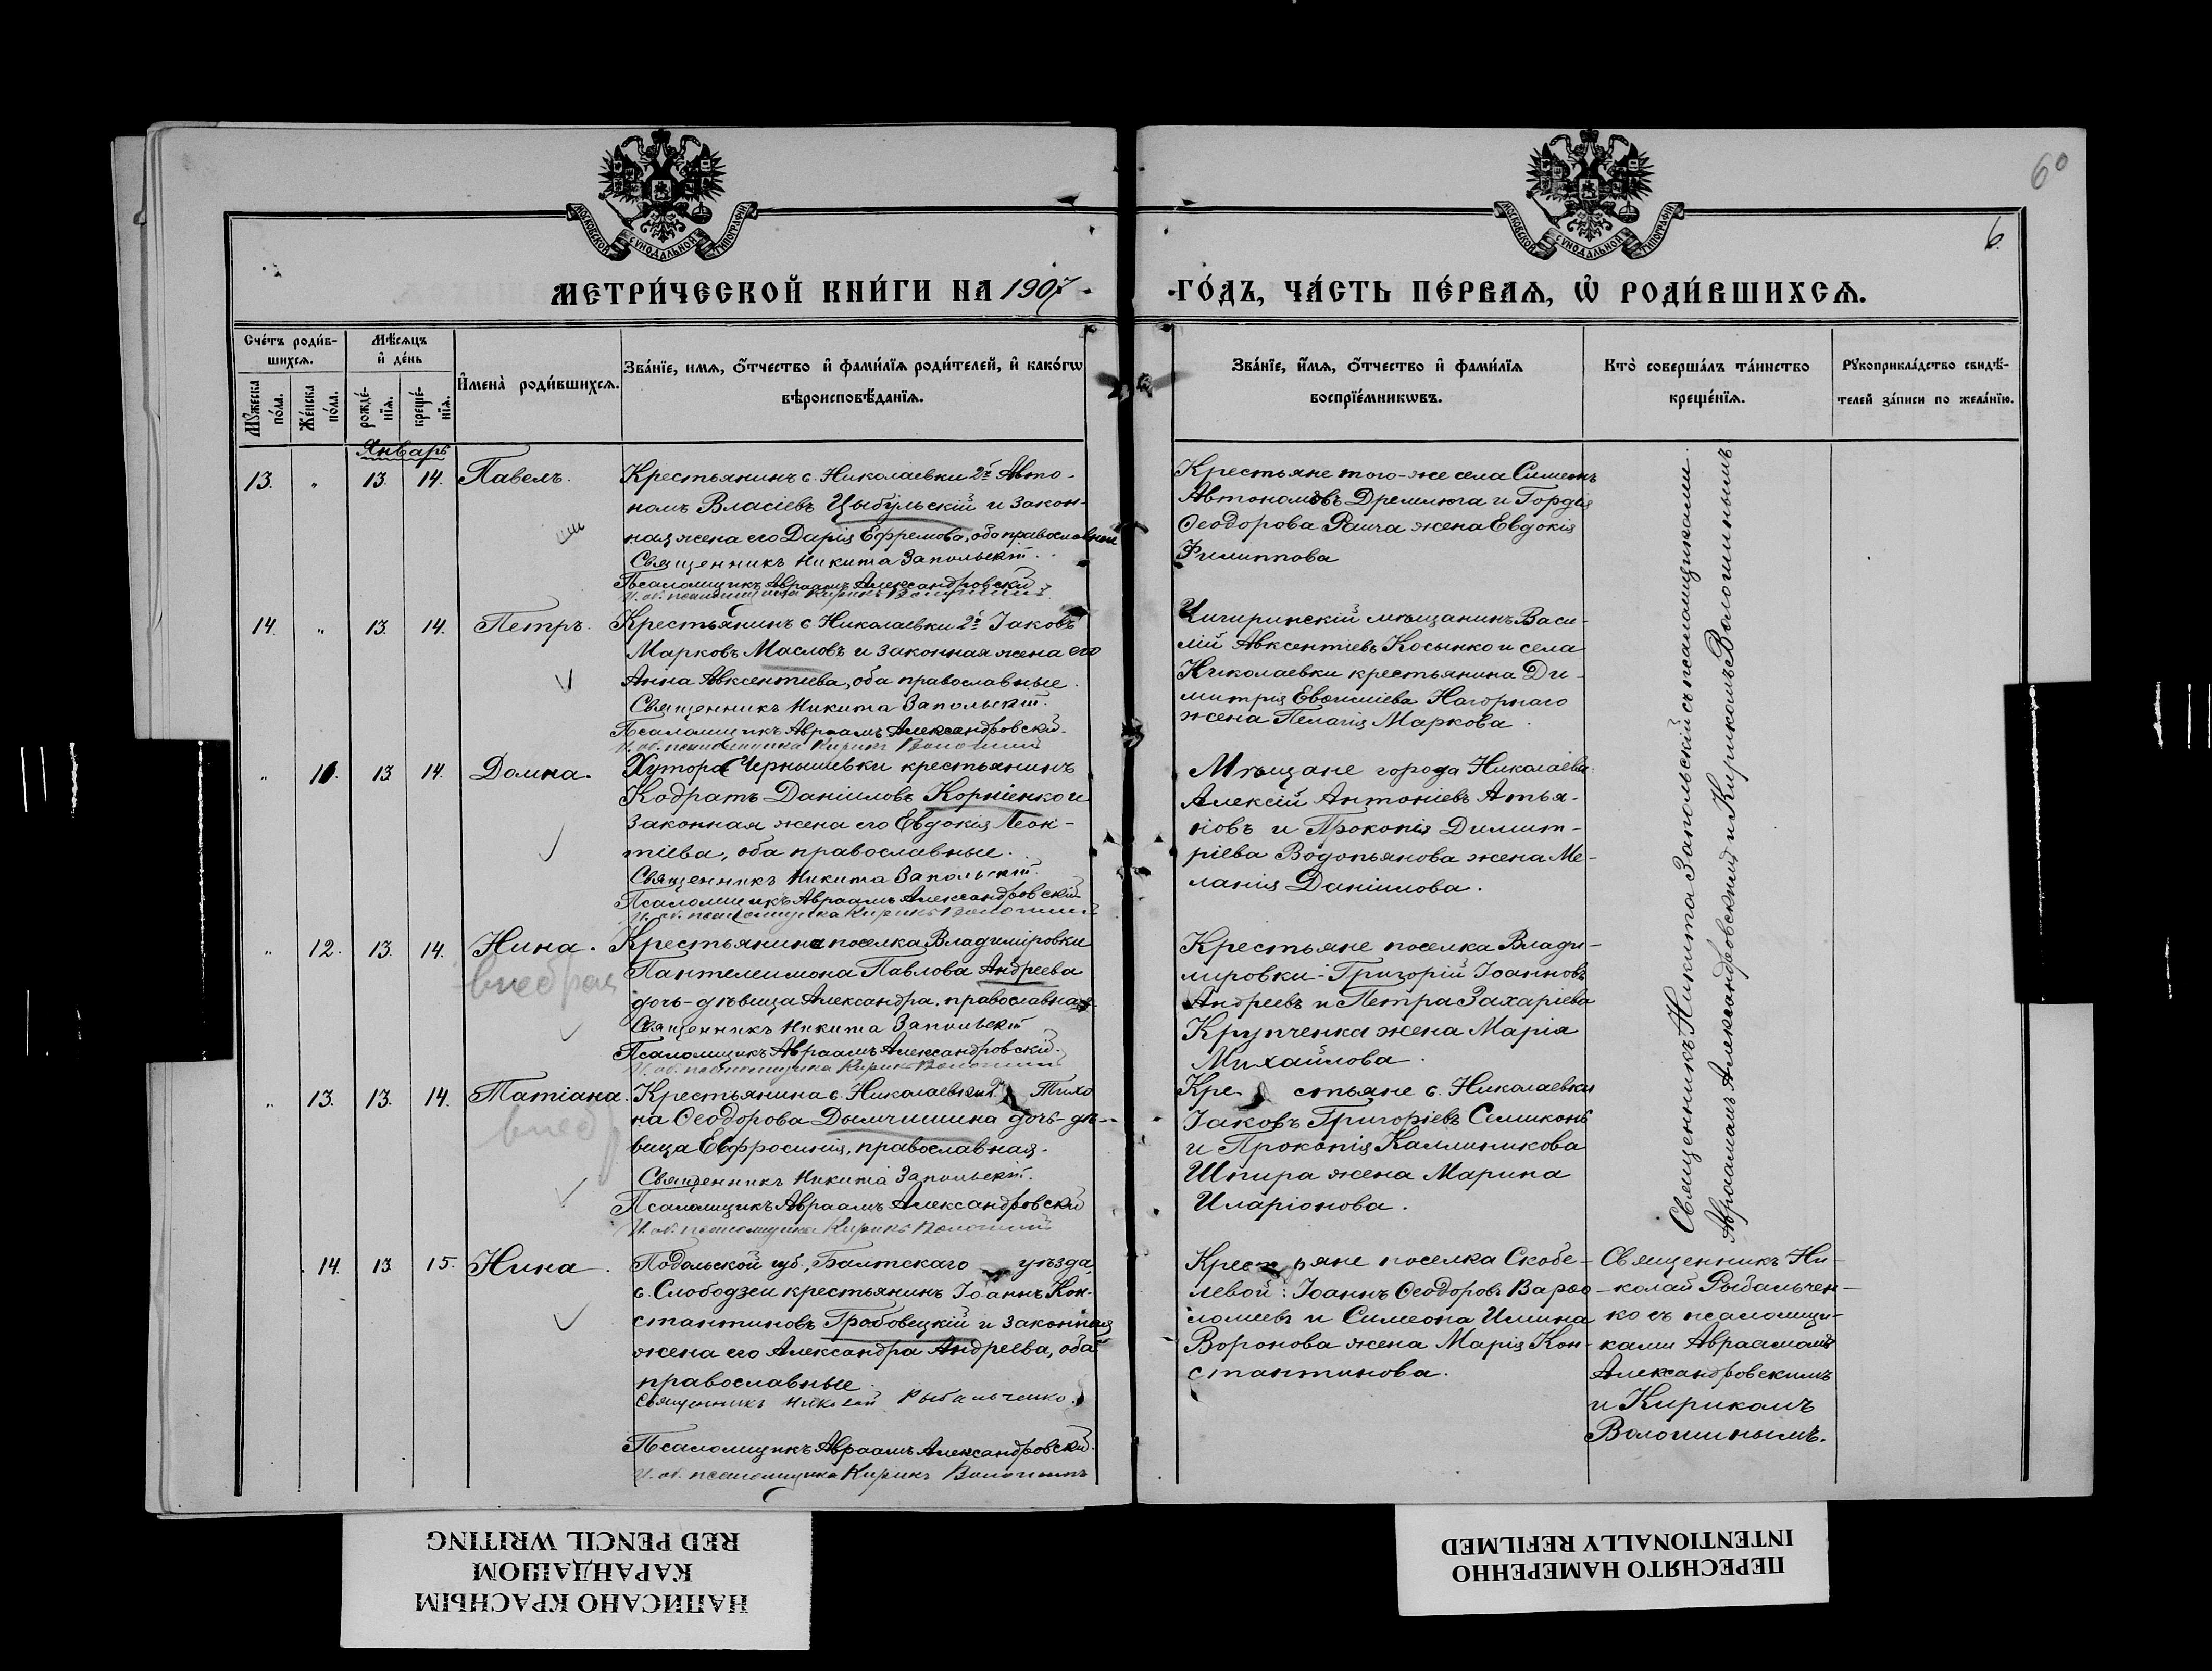 60
6.
МОСКОВСКОЙ СѴНОДАЛЬНОЙ ТИПОГРАФІИ
МОСКОВСКОЙ СѴНОДАЛЬНОЙ ТИПОГРАФІИ
МЕТРИ́ЧЕСКОЙ КНИ́ГИ НА 1907
ГО́ДЪ, ЧА́СТЬ ПЕ́РВАѦ, Ѡ҆ РОДИ́ВШИХСѦ.
Сче́тъ роди́в-
шихсѧ.
Мѣ́сѧцъ
и҆ де́нь
Мꙋ́жеска по́ла.
Же́нска по́ла.
рожде́-
нїѧ.
креще́-
нїѧ.
И҆мена̀ роди́вшихсѧ.
Зва́нїе, имѧ, ѻ҆́тчество и҆ фами́лїѧ роди́телей, и҆ како́гѡ
вѣроисповѣ́данїѧ.
Зва́нїе, и҆́мѧ, ѻ҆́тчество и҆ фами́лїѧ
воспрїе́мникѡвъ.
Кто̀ соверша́лъ та́инство
креще́нїѧ.
Рꙋкоприкла́дство свидѣ́-
телей за́писи по жела́нїю.
Январь
13. " 13. 14. Павелъ.
Крестьянинъ с. Николаевки 2й Авто-
номъ Власіевъ Цыбульскій и закон-
ная жена его Дарія Ефремова, оба православные
Священникъ Никита Запольскій.
Псаломщикъ Авраамъ Александровскій
И. об. псаломщика Кирикъ Волошинъ
Крестьяне того-же села Симеонъ
Автономовъ Дремлюга и Гордія
Ѳеодорова Рачка жена Евдокія
Филиппова
14. " 13. 14. Петръ.
Крестьянинъ с. Николаевки 2й Іаковъ
Марковъ Масловъ и законная жена его
Анна Авксентіева, оба православные.
Священникъ Никита Запольскій.
Псаломщикъ Авраамъ Александровскій.
И. об. псаломщика Кирикъ Волошинъ
Чигиринскій мѣщанинъ Васи-
лій Авксентіевъ Косынко и села
Николаевки крестьянина Ди-
митрія Евѳиміева Нагорнаго
жена Пелагія Маркова.
" 11. 13 14. Домна.
Хутора Чернышевки крестьянинъ
Кодратъ Даніиловъ Корніенко и
законная жена его Евдокія Леон-
тіева, оба православные.
Священникъ Никита Запольскій.
Псаломщикъ Авраамъ Александровскій
И. об. псаломщика Кирикъ Волошинъ
Мѣщане города Николаева
Алексій Антоніевъ
и Прокопія Димит-
ріева Водопьянова жена Ме-
ланія Даніилова.
" 12. 13. 14. Нина.
внебрач
Крестьянина поселка Владиміровки
Пантелеимона Павлова Андреева
дочь-дѣвица Александра, православная.
Священникъ Никита Запольскій
Псаломщикъ Авраамъ Александровскій.
И. об. псаломщика Кирикъ Волошинъ
Крестьяне поселка Влади-
міровки- Григорій Іоанновъ
Андреевъ и Петра Захаріева
Крупченка жена Марія
Михайлова.
" 13. 13. 14. Татіана.
внеб
Крестьянина с. Николаевки 2й Тихо
на Ѳеодорова Дымчишина дочь-дѣ-
вица Евфросинія, православная.
Священникъ Никита Запольскій.
Псаломщикъ Авраамъ Александровскій
И. об. псаломщика Кирикъ Волошинъ
Кре стьяне с. Николаевки
Іаковъ Григоріевъ
и Прокопія Каллиникова
Шпира жена Марина
Иларіонова.
Священникъ Никита Запольскій съ псаломщиками
Авраамомъ Александровскимъ и Кирикомъ Волошинымъ
14. 13. 15. Нина.
Подольской губ., Балтскаго уѣзда,
с. Слободзеи крестьянинъ Іоаннъ Кон-
стантиновъ Грабовецкій и законная
жена его Александра Андреева, оба
православные.
Священникъ Николай Рыбальченко.
Псаломщикъ Авраамъ Александровскій.
И. об. псаломщика Кирикъ Волошинъ
Крестьяне поселка Скобе-
левой: Іоаннъ Ѳеодоровъ Варѳо-
ломеевъ и Симеона Ильина
Воронова жена Марія Кон-
стантинова.
Священникъ Ни-
колай Рыбальчен-
ко съ псаломщи-
ками Авраамомъ
Александровскимъ
и Кирикомъ
Волошинымъ.
НАПИСАНО КРАСНЫМ
КАРАНДАШОМ
RED PENCIL WRITING
ПЕРЕСНЯТО НАМЕРЕННО
INTENTIONALLY REFILMED